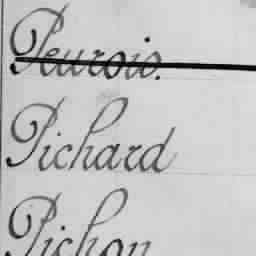 Peurois.
Pichard
Pichon